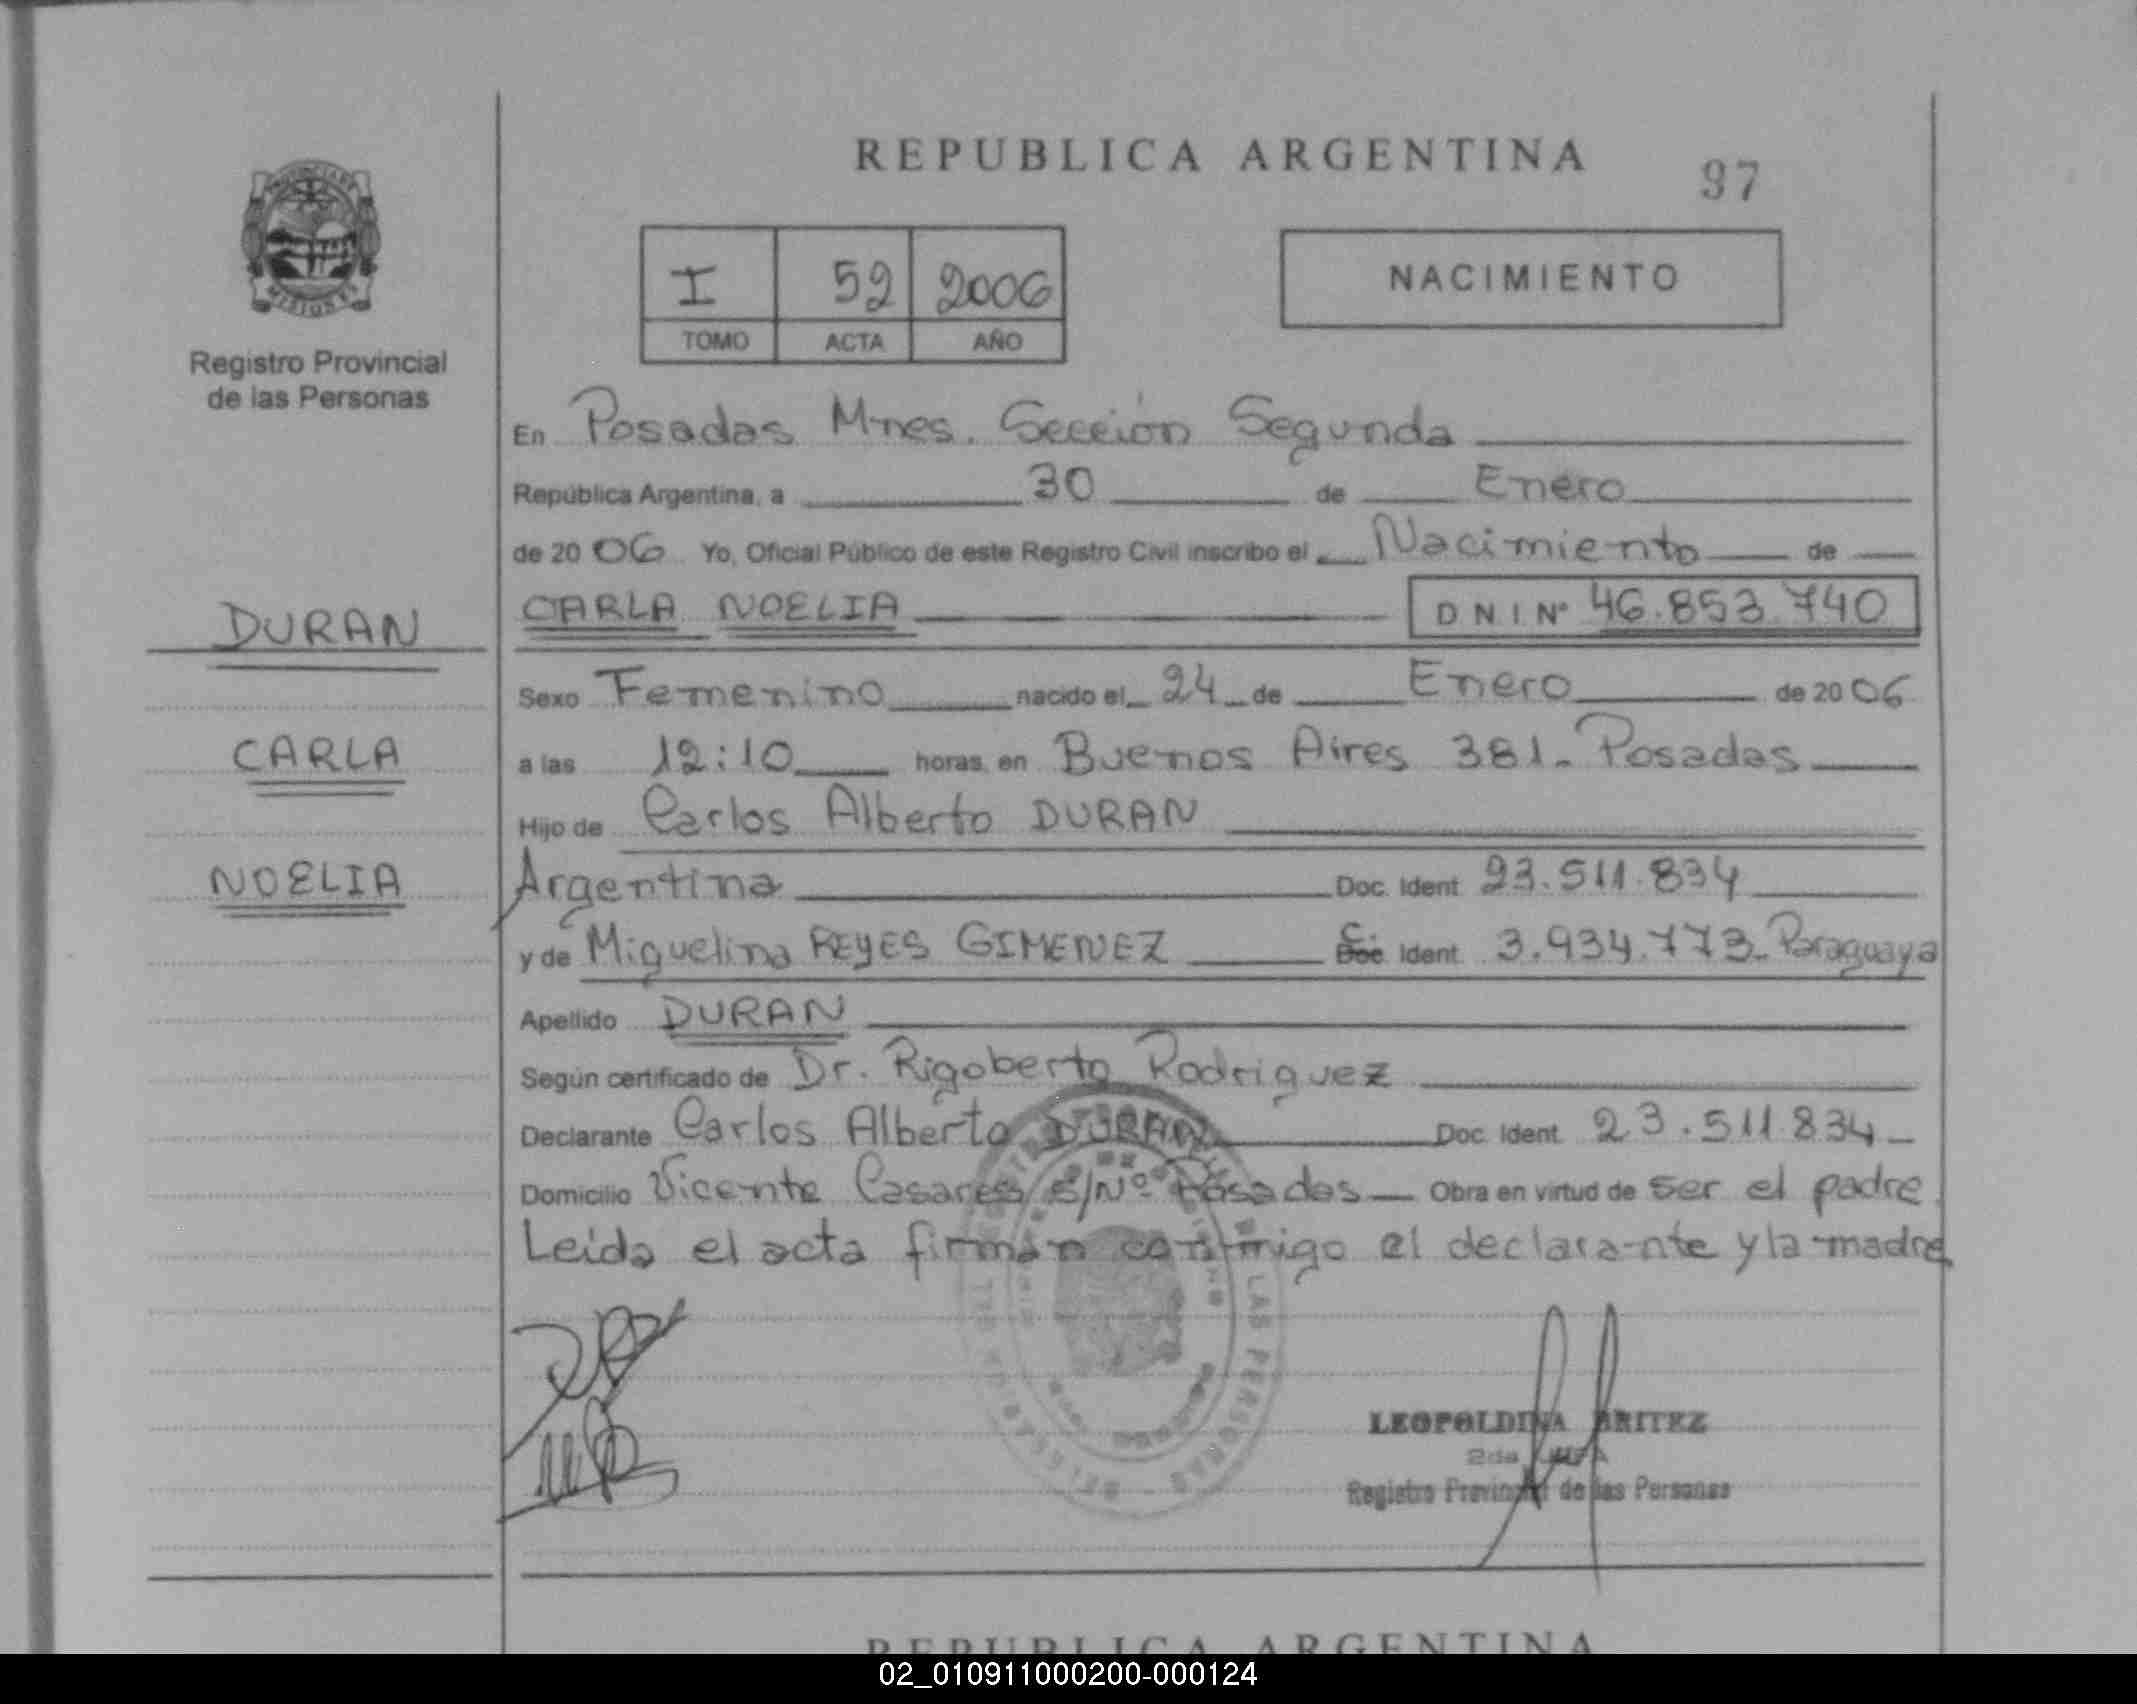 REPUBLICA ARGENTINA
97
MISIONES
Registro Provincial
de las Personas
I 52 2006
TOMO ACTA AÑO
NACIMIENTO
En Posadas Mnes. Sección Segunda
República Argentina, a 30 de Enero
de 2006 Yo, Oficial Público de este Registro Civil inscribo el Nacimiento de
DURAN
CARLA NOELIA DNI Nº 46.853.740
Sexo Femenino nacido el 24 de Enero de 2006
CARLA
a las 12:10 horas, en Buenos Aires 381- Posadas
Hijo de Carlos Alberto DURAN
NOELIA
Argentina Doc. Ident 23.511.834
y de Miguelina REYES GIMENEZ C. Ident. 3.934.773- Paraguaya
Apellido DURAN
Según certificado de Dr. Rigoberto Rodriguez
Declarante Carlos Alberto DURAN Doc. Ident. 23.511.834-
Domicilio Vicente Casares S/Nº Posadas Obra en virtud de ser el padre
Leida el acta firman conmigo el declarante y la madre
LAS PERSONAS
LEOPOLDINA BRITEZ
2da JEFA
Registro Provincial de las Personas
REPUBLICA ARGENTINA
02_010911000200-000124